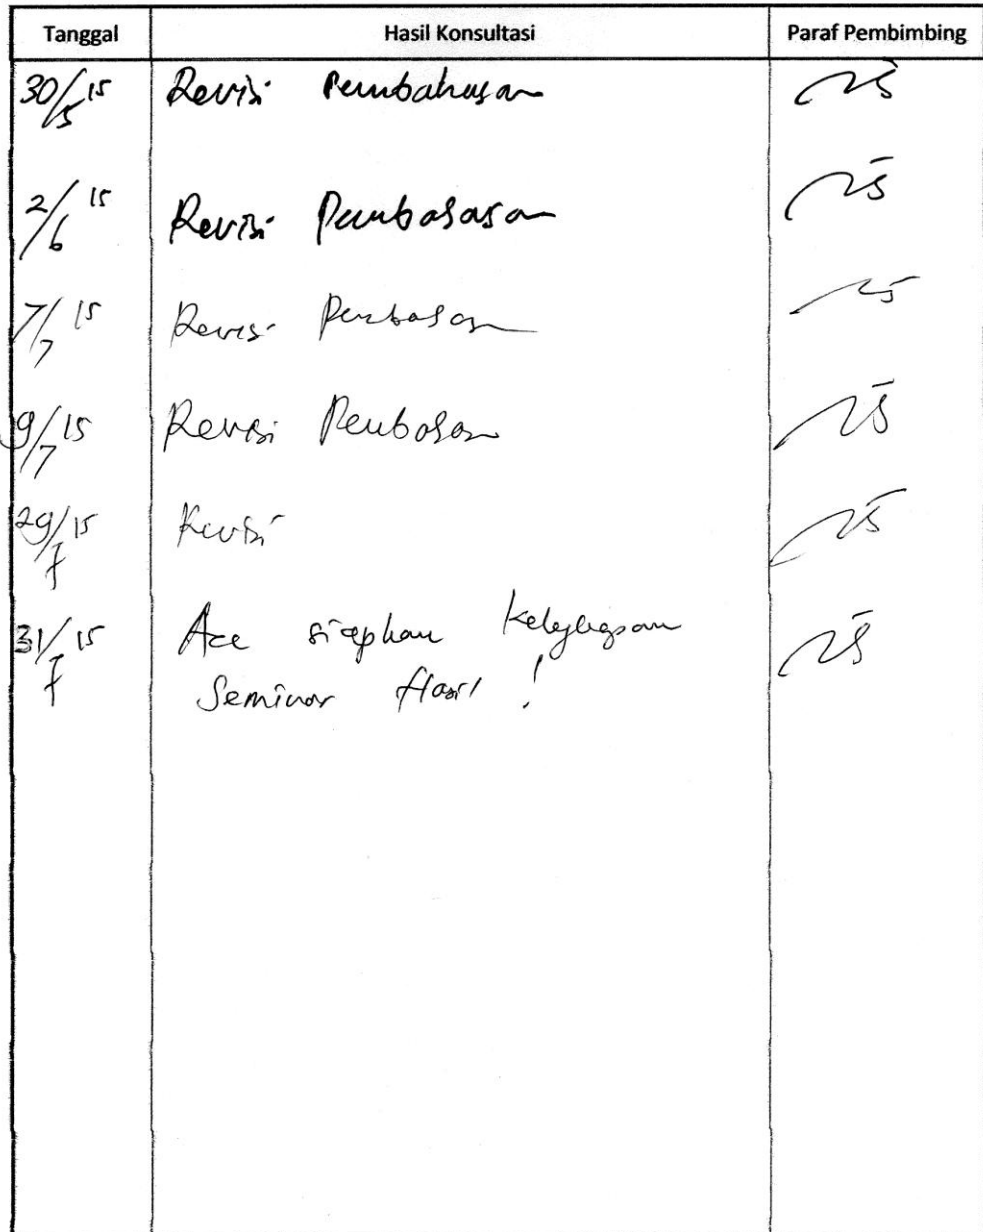 Tanggal Hasil Konsultasi Paraf Pembimbing
30/5 15 Revisi Pembahasan
2/6 15 Revisi Pembahasan
7/7 15 Revisi Pembahasan
9/7 15 Revisi Pembahasan
29/7 15 Revisi
31/7 15 Acc siapkan kelengkapan
Seminar Hasil !